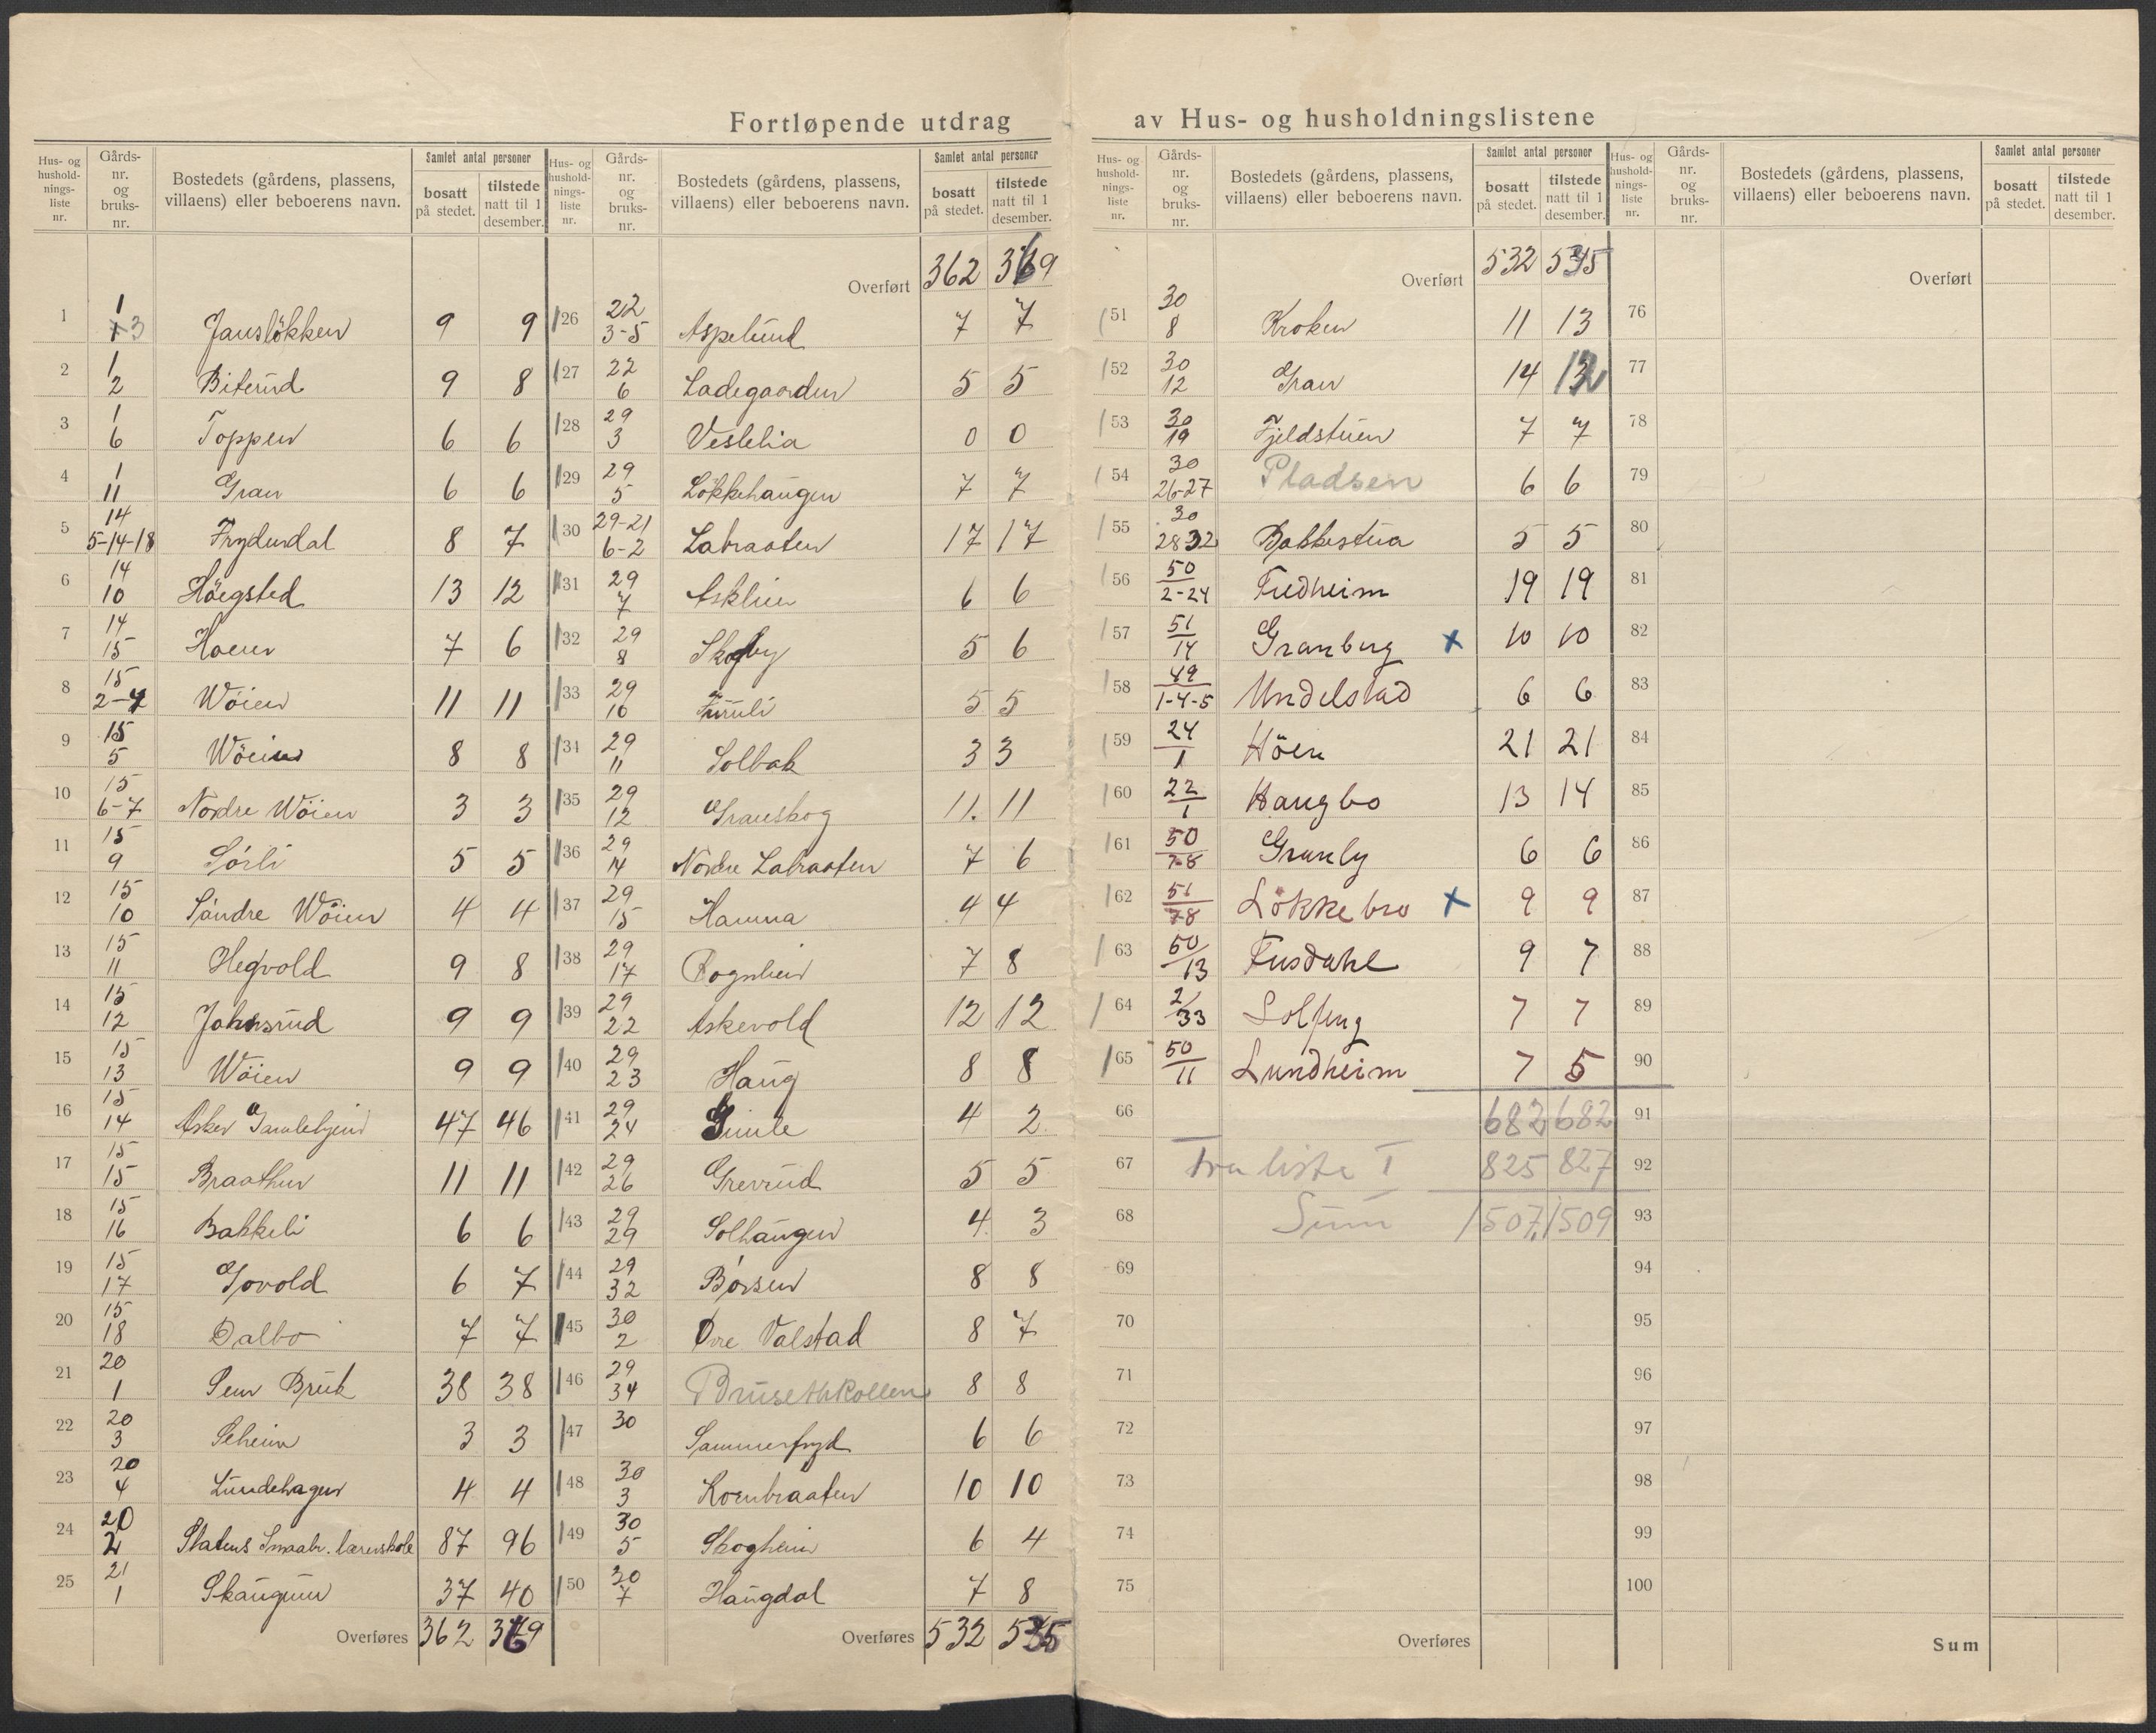 Fortløpende utdrag av Hus- og husholdningslistene
Hus- og husholdningsliste nr. | Gårds-nr. og bruks-nr. | Bostedets (gårdens, plassens, villaens) eller beboerens navn. | Samlet antal personer bosatt på stedet. | tilstede natt til 1 desember.
1 | 1 / 1 3 | Jansløkken | 9 | 9
2 | 1 / 2 | Biterud | 9 | 8
3 | 1 / 6 | Toppen | 6 | 6
4 | 1 / 11 | Gran | 6 | 6
5 | 14 / 5-14-18 | Frydendal | 8 | 7
6 | 14 / 10 | Höegsted | 13 | 12
7 | 14 / 15 | Hoen | 7 | 6
8 | 15 / 2-4 | Wöien | 11 | 11
9 | 15 / 5 | Wöien | 8 | 8
10 | 15 / 6-7 | Nordre Wöien | 3 | 3
11 | 15 / 9 | Sörli | 5 | 5
12 | 15 / 10 | Söndre Wöien | 4 | 4
13 | 15 / 11 | Hegvold | 9 | 8
14 | 15 / 12 | Johnsrud | 9 | 9
15 | 15 / 13 | Wöien | 9 | 9
16 | 15 / 14 | Asker Gamlehjem | 47 | 46
17 | 15 / 15 | Braathen | 11 | 11
18 | 15 / 16 | Bakkeli | 6 | 6
19 | 15 / 17 | Govold | 6 | 7
20 | 15 / 18 | Dalbo | 7 | 7
21 | 20 / 1 | Sem Bruk | 38 | 38
22 | 20 / 3 | Seheim | 3 | 3
23 | 20 / 4 | Lundehagen | 4 | 4
24 | 20 / 2 | Statens Smaabr. lærerskole | 87 | 96
25 | 21 / 1 | Skaugum | 37 | 40
Overføres 362 369
Hus- og husholdningsliste nr. | Gårds-nr. og bruks-nr. | Bostedets (gårdens, plassens, villaens) eller beboerens navn. | Samlet antal personer bosatt på stedet. | tilstede natt til 1 desember.
Overført 362 369
26 | 22 / 3-5 | Aspelund | 7 | 7
27 | 22 / 6 | Ladegaarden | 5 | 5
28 | 29 / 3 | Veslelia | 0 | 0
29 | 29 / 5 | Løkkehaugen | 7 | 7
30 | 29-21 / 6-2 | Labraaten | 17 | 17
31 | 29 / 7 | Asklien | 6 | 6
32 | 29 / 8 | Skogby | 5 | 6
33 | 29 / 10 | Furuli | 5 | 5
34 | 29 / 11 | Solbak | 3 | 3
35 | 29 / 12 | Granskog | 11. | 11
36 | 29 / 14 | Nordre Labraaten | 7 | 6
37 | 29 / 15 | Hamna | 4 | 4
38 | 29 / 17 | Rognheim | 7 | 8
39 | 29 / 22 | Askevold | 12 | 12
40 | 29 / 23 | Haug | 8 | 8
41 | 29 / 24 | Gimle | 4 | 2
42 | 29 / 26 | Grevrud | 5 | 5
43 | 29 / 29 | Solhaugen | 4 | 3
44 | 29 / 32 | Børsen | 8 | 8
45 | 30 / 2 | Øvre Valstad | 8 | 7
46 | 29 / 34 | Brusethkollen | 8 | 8
47 | 30 | Sommerfryd | 6 | 6
48 | 30 / 3 | Kornbraaten | 10 | 10
49 | 30 / 5 | Skogheim | 6 | 4
50 | 30 / 7 | Haugdal | 7 | 8
Overføres 532 535
Hus- og husholdningsliste nr. | Gårds-nr. og bruks-nr. | Bostedets (gårdens, plassens, villaens) eller beboerens navn. | Samlet antal personer bosatt på stedet. | tilstede natt til 1 desember.
Overført 532 535
51 | 30 / 8 | Kroken | 11 | 13
52 | 30 / 12 | Gran | 14 | 12
53 | 30 / 19 | Fjeldstuen | 7 | 7
54 | 30 / 26-27 | Pladsen | 6 | 6
55 | 30 / 28 32 | Bakkestua | 5 | 5
56 | 50 / 2-24 | Fredheim | 19 | 19
57 | 51 / 14 | Granberg x | 10 | 10
58 | 49 / 1-4-5 | Undelstad | 6 | 6
59 | 24 / 1 | Höen | 21 | 21
60 | 22 / 1 | Haugbo | 13 | 14
61 | 50 / 7-8 | Granly | 6 | 6
62 | 51 / 78 | Løkkebro x | 9 | 9
63 | 50 / 13 | Fusdahl | 9 | 7
64 | 2 / 33 | Solfeng | 7 | 7
65 | 50 / 11 | Lundheim | 7 | 5
66 682 682
67 Fra liste I 825 827
68 Sum 1507 1509
69
70
71
72
73
74
75
Overføres
Hus- og husholdningsliste nr. | Gårds-nr. og bruks-nr. | Bostedets (gårdens, plassens, villaens) eller beboerens navn. | Samlet antal personer bosatt på stedet. | tilstede natt til 1 desember.
Overført
76
77
78
79
80
81
82
83
84
85
86
87
88
89
90
91
92
93
94
95
96
97
98
99
100
Sum